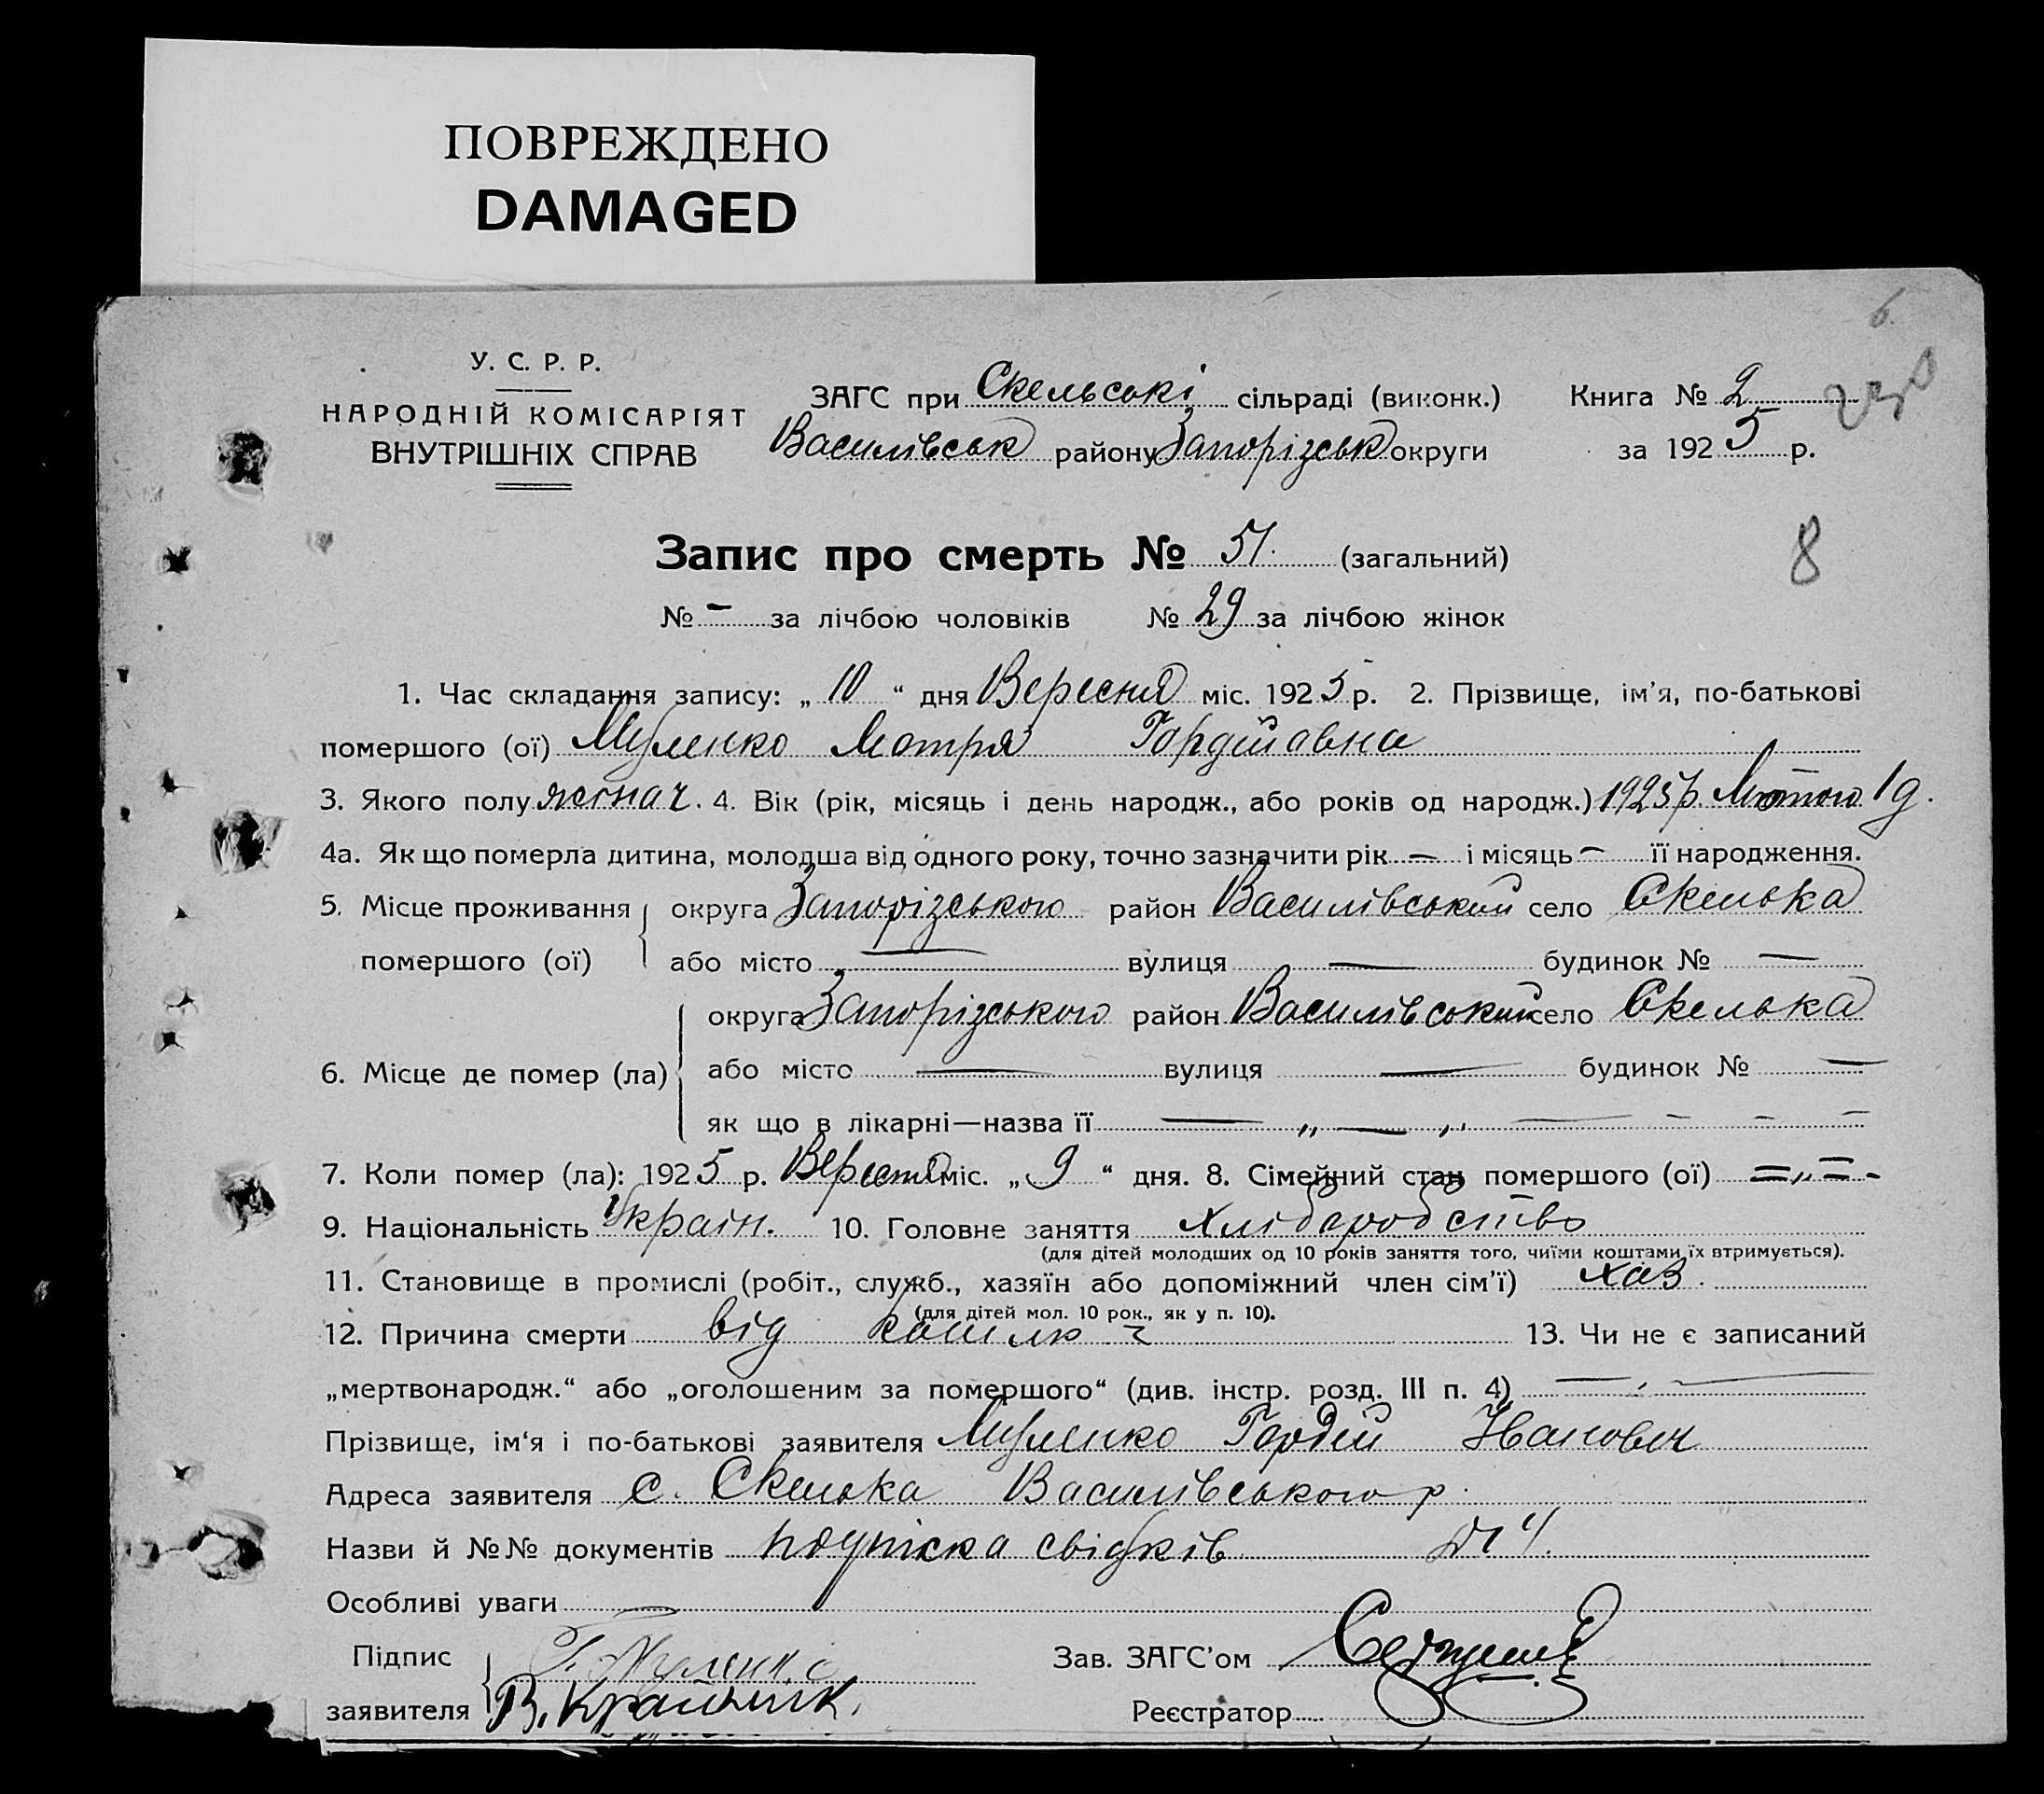 ПОВРЕЖДЕНО
DAMAGED
6.
У. С. Р. Р.
НАРОДНІЙ КОМІСАРІЯТ
ВНУТРІШНІХ СПРАВ
ЗАГС при Скельські сільраді (виконк.) Книга № 2
Василівськ району Запорізськ округи за 1925 р.
Запис про смерть № 51. (загальний)
8
№ – за лічбою чоловіків № 29 за лічбою жінок
1. Час складання запису: „ 10 “ дня Вересня міс. 1925 р. 2. Прізвище, ім’я, по-батькові
помершого (ої) Муленко Мотря Гордіївна
3. Якого полу жіноч. 4. Вік (рік, місяць і день народж., або років од народж.) 1925 р. Лютого 1 д.
4а. Як що померла дитина, молодша від одного року, точно зазначити рік – і місяць – її народження.
5. Місце проживання округа Запорізського район Василівський село Скелька
помершого (ої) або місто — вулиця — будинок № —
округа Запорізського район Василівський село Скелька
6. Місце де помер (ла) або місто — вулиця — будинок № —
як що в лікарні—назва її — „ — „ — – – –
7. Коли помер (ла): 1925 р. Вересня міс. „ 9 “ дня. 8. Сімейний стан помершого (ої) = „ = -
9. Національність Україн. 10. Головне заняття хліборобство
(для дітей молодших од 10 років заняття того, чиїми коштами їх втримується).
11. Становище в промислі (робіт., служб., хазяїн або допоміжний член сім’ї) хаз.
(для дітей мол. 10 рок., як у п. 10).
12. Причина смерти від кошлю 13. Чи не є записаний
„мертвонародж.“ або „оголошеним за помершого“ (див. інстр. розд. III п. 4) —
Прізвище, ім‘я і по-батькові заявителя Муленко Гордій Иванович
Адреса заявителя с. Скелька Василівського р.
Назви й №№ документів подпіска свідків
Особливі уваги —
Підпис Г. Муленко
Зав. ЗАГС’ом
заявителя В. Крайник.
Реєстратор